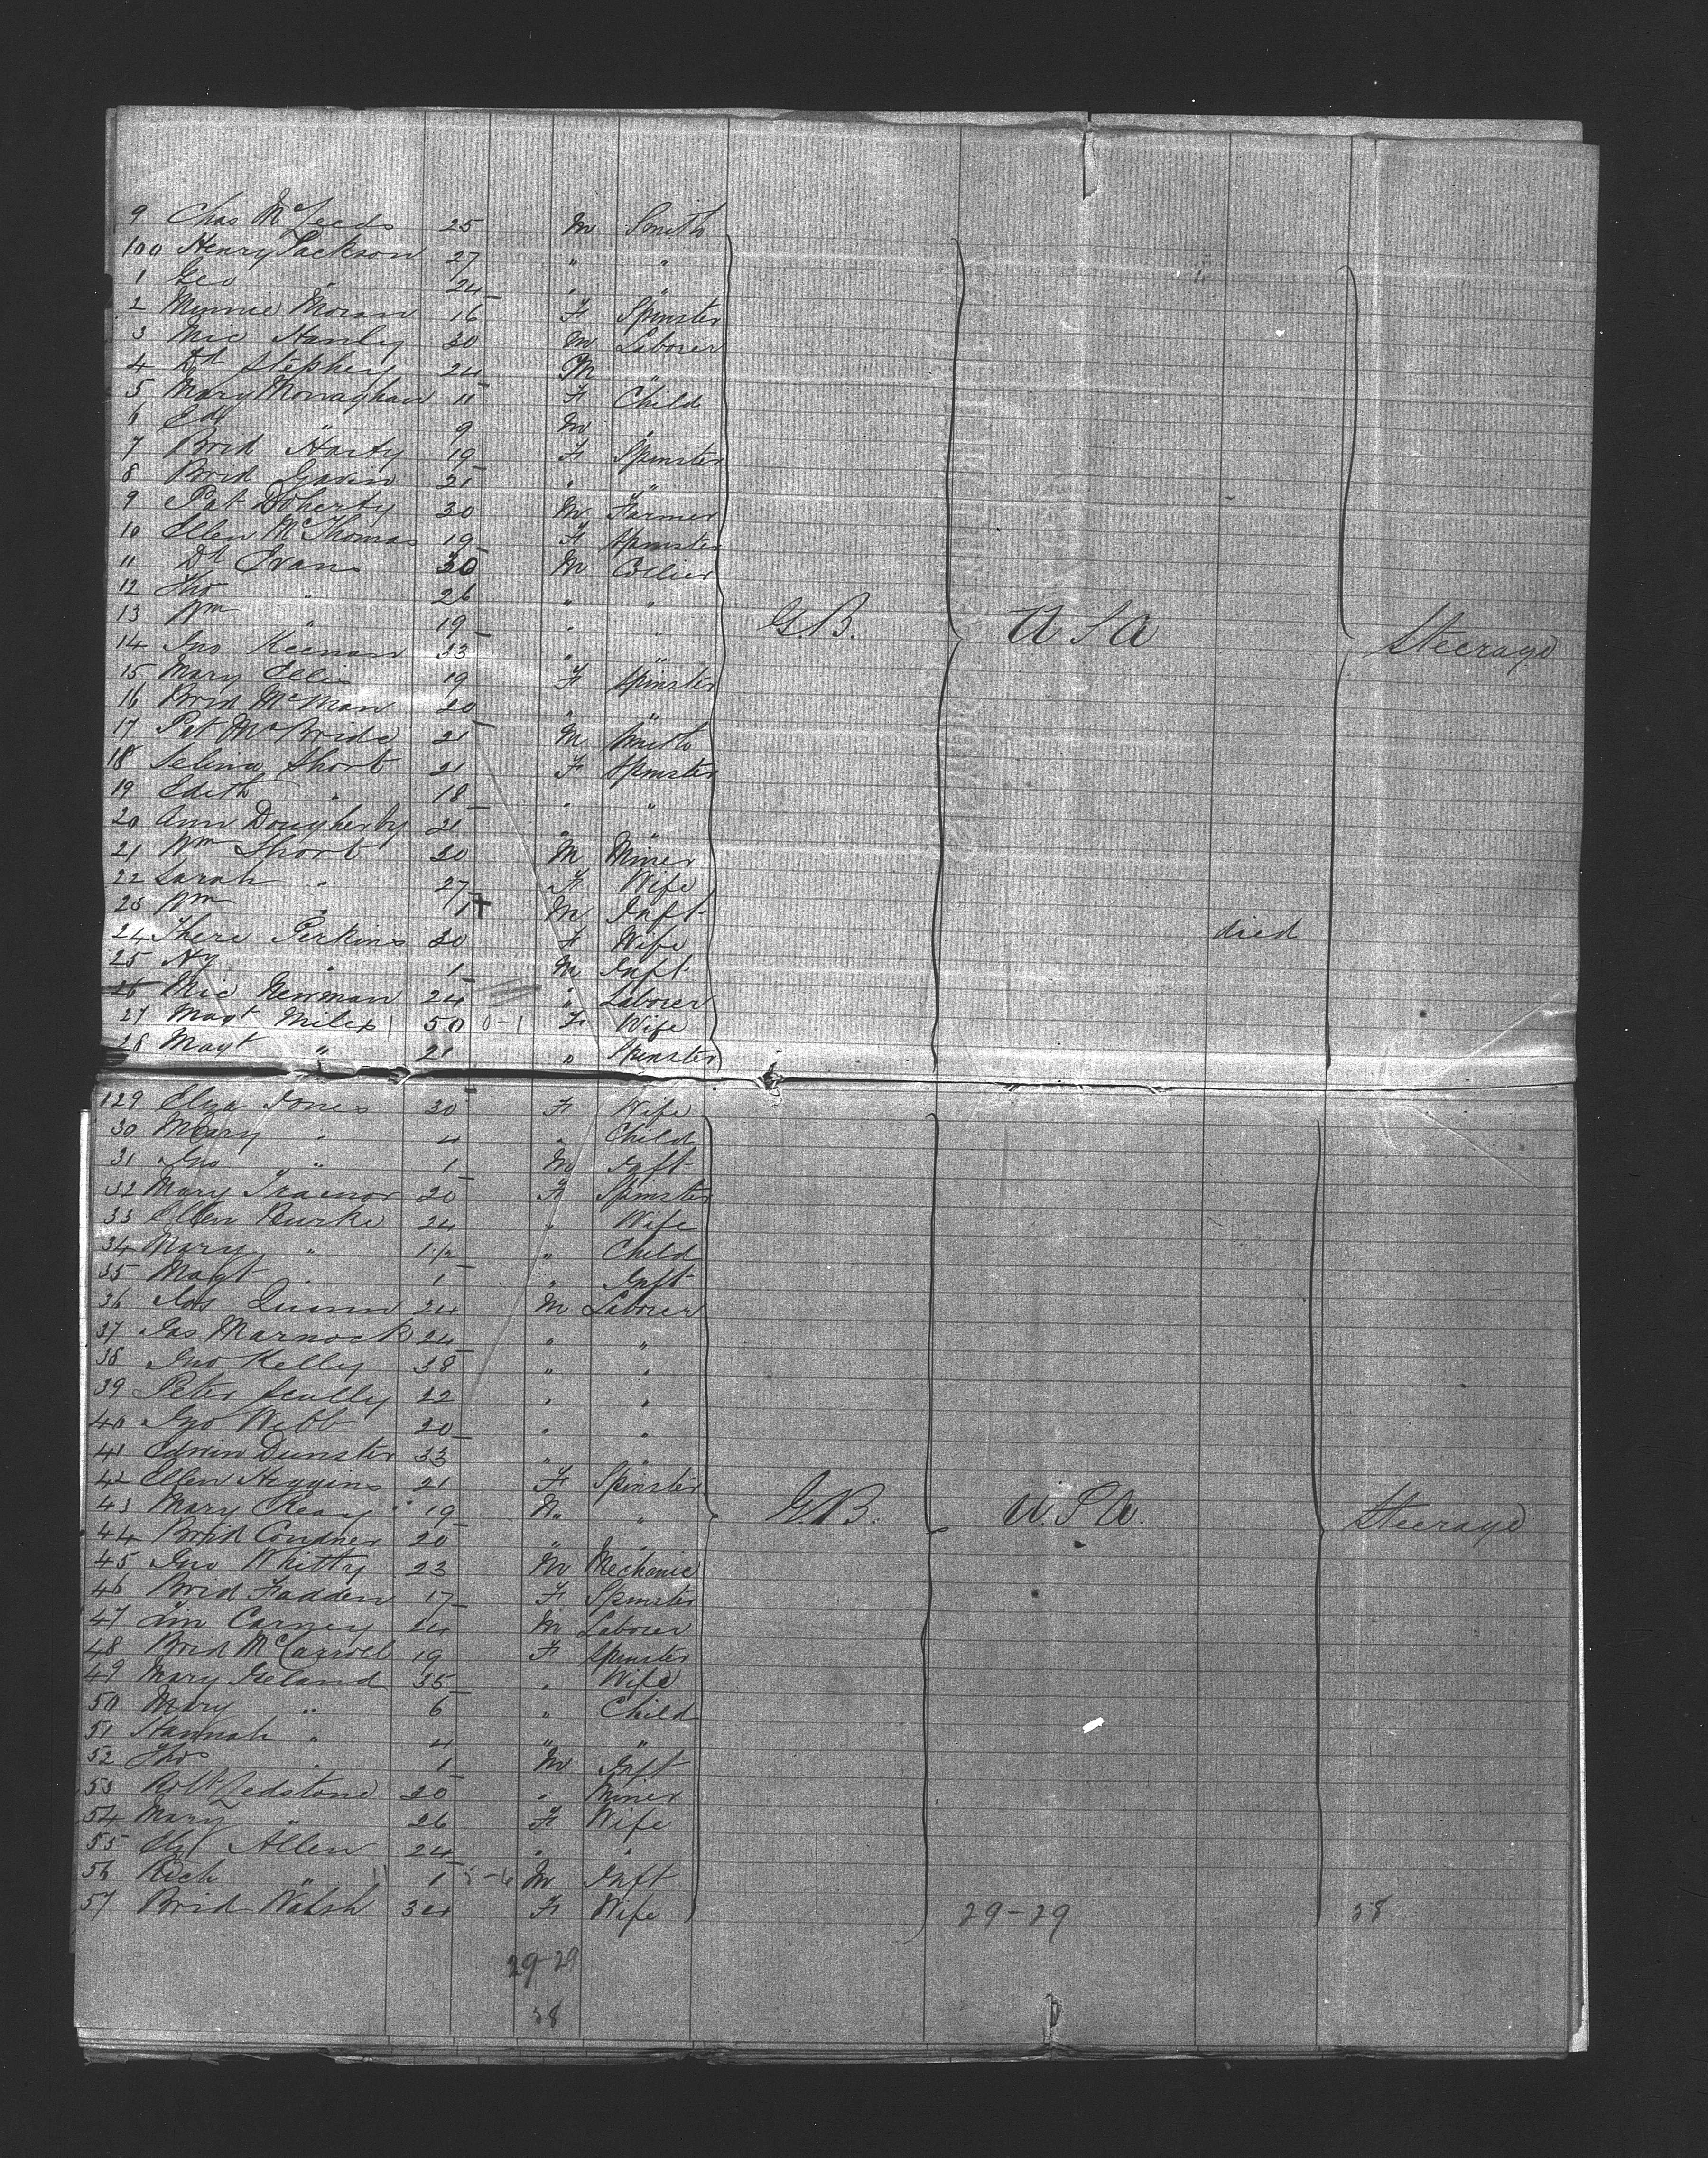 9 Chas McLeeds 25 M Smith
100 Henry Jackson 27 " "
1 Geo " 24 " "
2 Minnie Moran 16 F Spinster
3 Mic Hanly 20 M Laborer
4 Dl Stephens 24 M "
5 Mary Monaghan 11 F Child
6 Edd " 9 M "
7 Brid Harty 19 F Spinster
8 Brid Gavin 21 " "
9 Pat Doherty 30 M Farmer
10 Ellen McThomas 19 F Spinster
11 Dl Evans 30 M Collier
12 Tho " 26 " "
13 Wm " 19 " " G.B. U S A Steerage
14 Jno Keenan 33 " "
15 Mary Ellis 19 F Spinster
16 Brid McMan 20 " "
17 Pat McBride 21 M Smith
18 Selina Short 21 F Spinster
19 Edith " 18 " "
20 Ann Dougherty 21 " "
21 Wm Short 30 M Miner
22 Sarah " 27 F Wife
23 Wm " 1 + M Inft
24 There Perkins 30 F Wife died
25 Hy " 1 M Inft
26 Mic Newman 24 " Laborer
27 Magt Miles 50 0-1 F Wife
28 Magt " 21 " Spinster
129 Eliza Jones 30 F Wife
30 Mary " 4 " Child
31 Jno " 1 M Inft
32 Mary Trainor 20 F Spinster
33 Ellen Burke 24 " Wife
34 Mary " 1½ " Child
35 Magt " 1 " Inft
36 Jas Quinn 24 M Laborer
37 Jas Marnock 24 " "
38 Jno Kelly 38 " "
39 Peter Scully 22 " "
40 Jno Webb 20 " "
41 Edwin Dunster 33 " "
42 Ellen Higgins 21 F Spinster
43 Mary Keay 19 " " G.B. U.S.A. Steerage
44 Brid Condner 20 " "
45 Jno Whitty 23 M Mechanic
46 Brid Fadden 17 F Spinster
47 Jim Carney 24 M Laborer
48 Brid McCarroll 19 F Spinster
49 Mary Geeland 35 " Wife
50 Mary " 6 " Child
51 Hannah " 4 " "
52 Thos " 1 M Inft
53 Robt Ledstone 30 " Miner
54 Mary " 26 F Wife
55 Allen 24 " "
56 Rich " 1 M Inft
57 Brid Walsh 34 F Wife 29-29 38
29-29
38